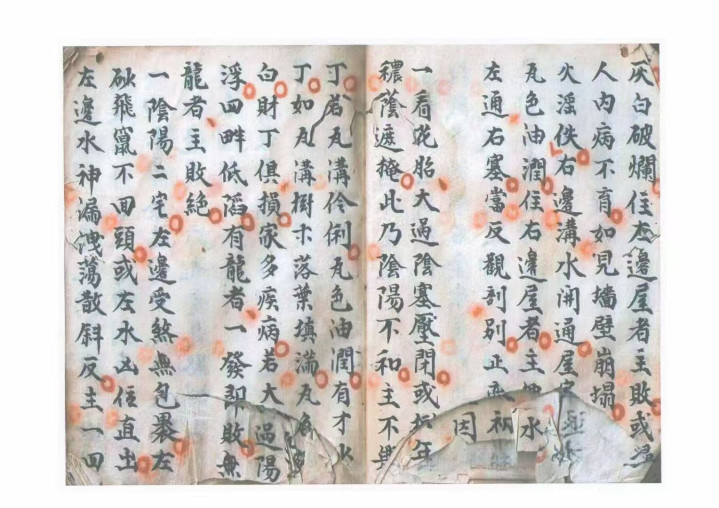 灰白破爛住左邊屋者主敗或
人内病不育如見墻壁崩塌
火淫佚右邊溝水開通屋
瓦色油潤住右邊屋者主 水
左通右塞當反觀剖别正
因
一看花胎大過陰塞壓閉或 年
穠蔭遮掩此乃陰陽不和主不
丁若瓦溝伶俐瓦色油潤有才
丁如瓦溝樹木落葉填滿瓦
白財丁俱損家多疾病若大過陽
浮四畔低滔有龍者一發即敗無
龍者主敗絶
一陰陽二宅左邊受煞無包裹左
砂飛竄不回頭或左水凶 直出
左邊水神漏洩蕩散斜反主一四